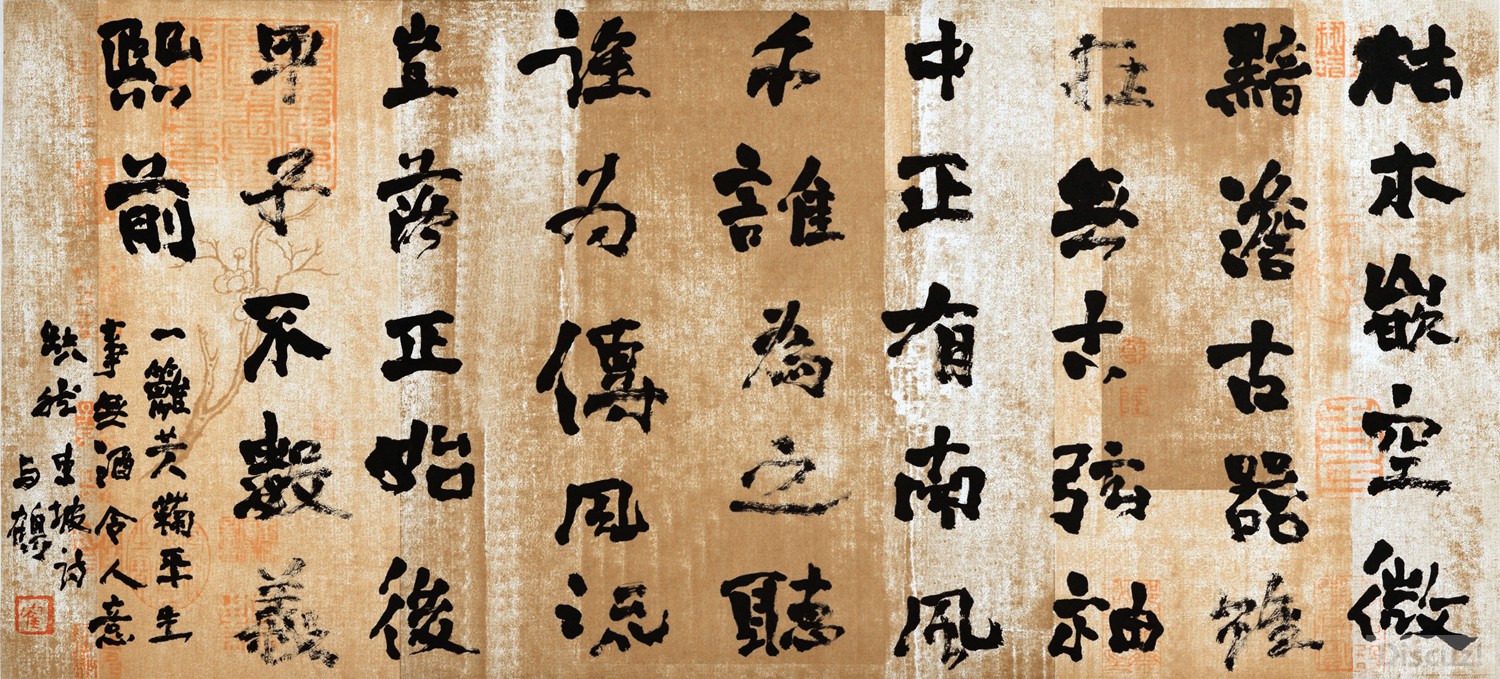 枯木嵌空微
黯澹古器雖
在無古弦袖
中正有南風
手誰為之聽
誰为傳風流
豈落正始後
甲子不數義
熙前
一籬黄鞠平生
事無酒令人意
缺然 東坡诗
与鶴
Discuz!